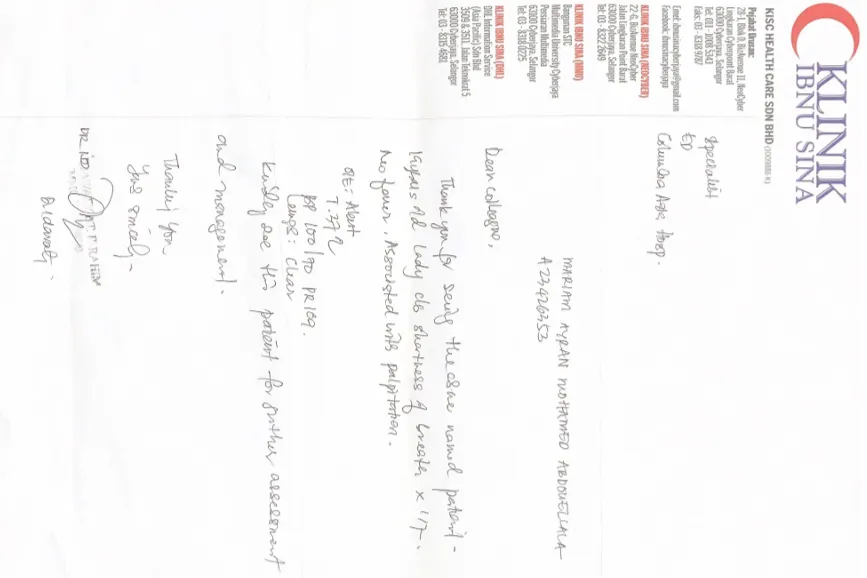 KLINIK
IBNU SINA
KISC HEALTH CARE SDN BHD
Pejabat Urusan:
Lingkaran Cyberpoint Barat
63000 Cyberjaya, Selangor
Faks: 03 - 8318 9787
Facebook: ibnusinacyberjaya
KLINIK IBNU SINA (NEOCYBER)
22-G, BizAvenue NeoCyber
Jalan Lingkaran Point Barat
63000 Cyberjaya, Selangor
Tel: 03 - 8322 2649
KLINIK IBNU SINA (MMU)
Bangunan STC
Multimedia University Cyberjaya
Persiaran Multimedia
63000 Cyberjaya, Selangor
Tel: 03 - 8318 0225
KLINIK IBNU SINA (DHL)
DHL Information Service
(Asia Pacific) Sdn Bhd
3509 & 3511, Jalan Teknokrat 5
63000 Cyberjaya, Selangor
Tel: 03 - 8315 4681
Specialist
ED
Columbia Asia Hosp.
MARIAM AYRAN MOHAMED ABDOUELLALA
A23426353
Dear Colleague,
Thank you for seeing the above named patient -
lady c/o shortness of breath x 1/7.
No fever. Associated with palpitation.
O/E: Alert
T. 37°C
BP 100/90 PR 109.
Lungs: Clear
Kindly see this patient for further assessment
and management.
Thanking you
Yours sincerely